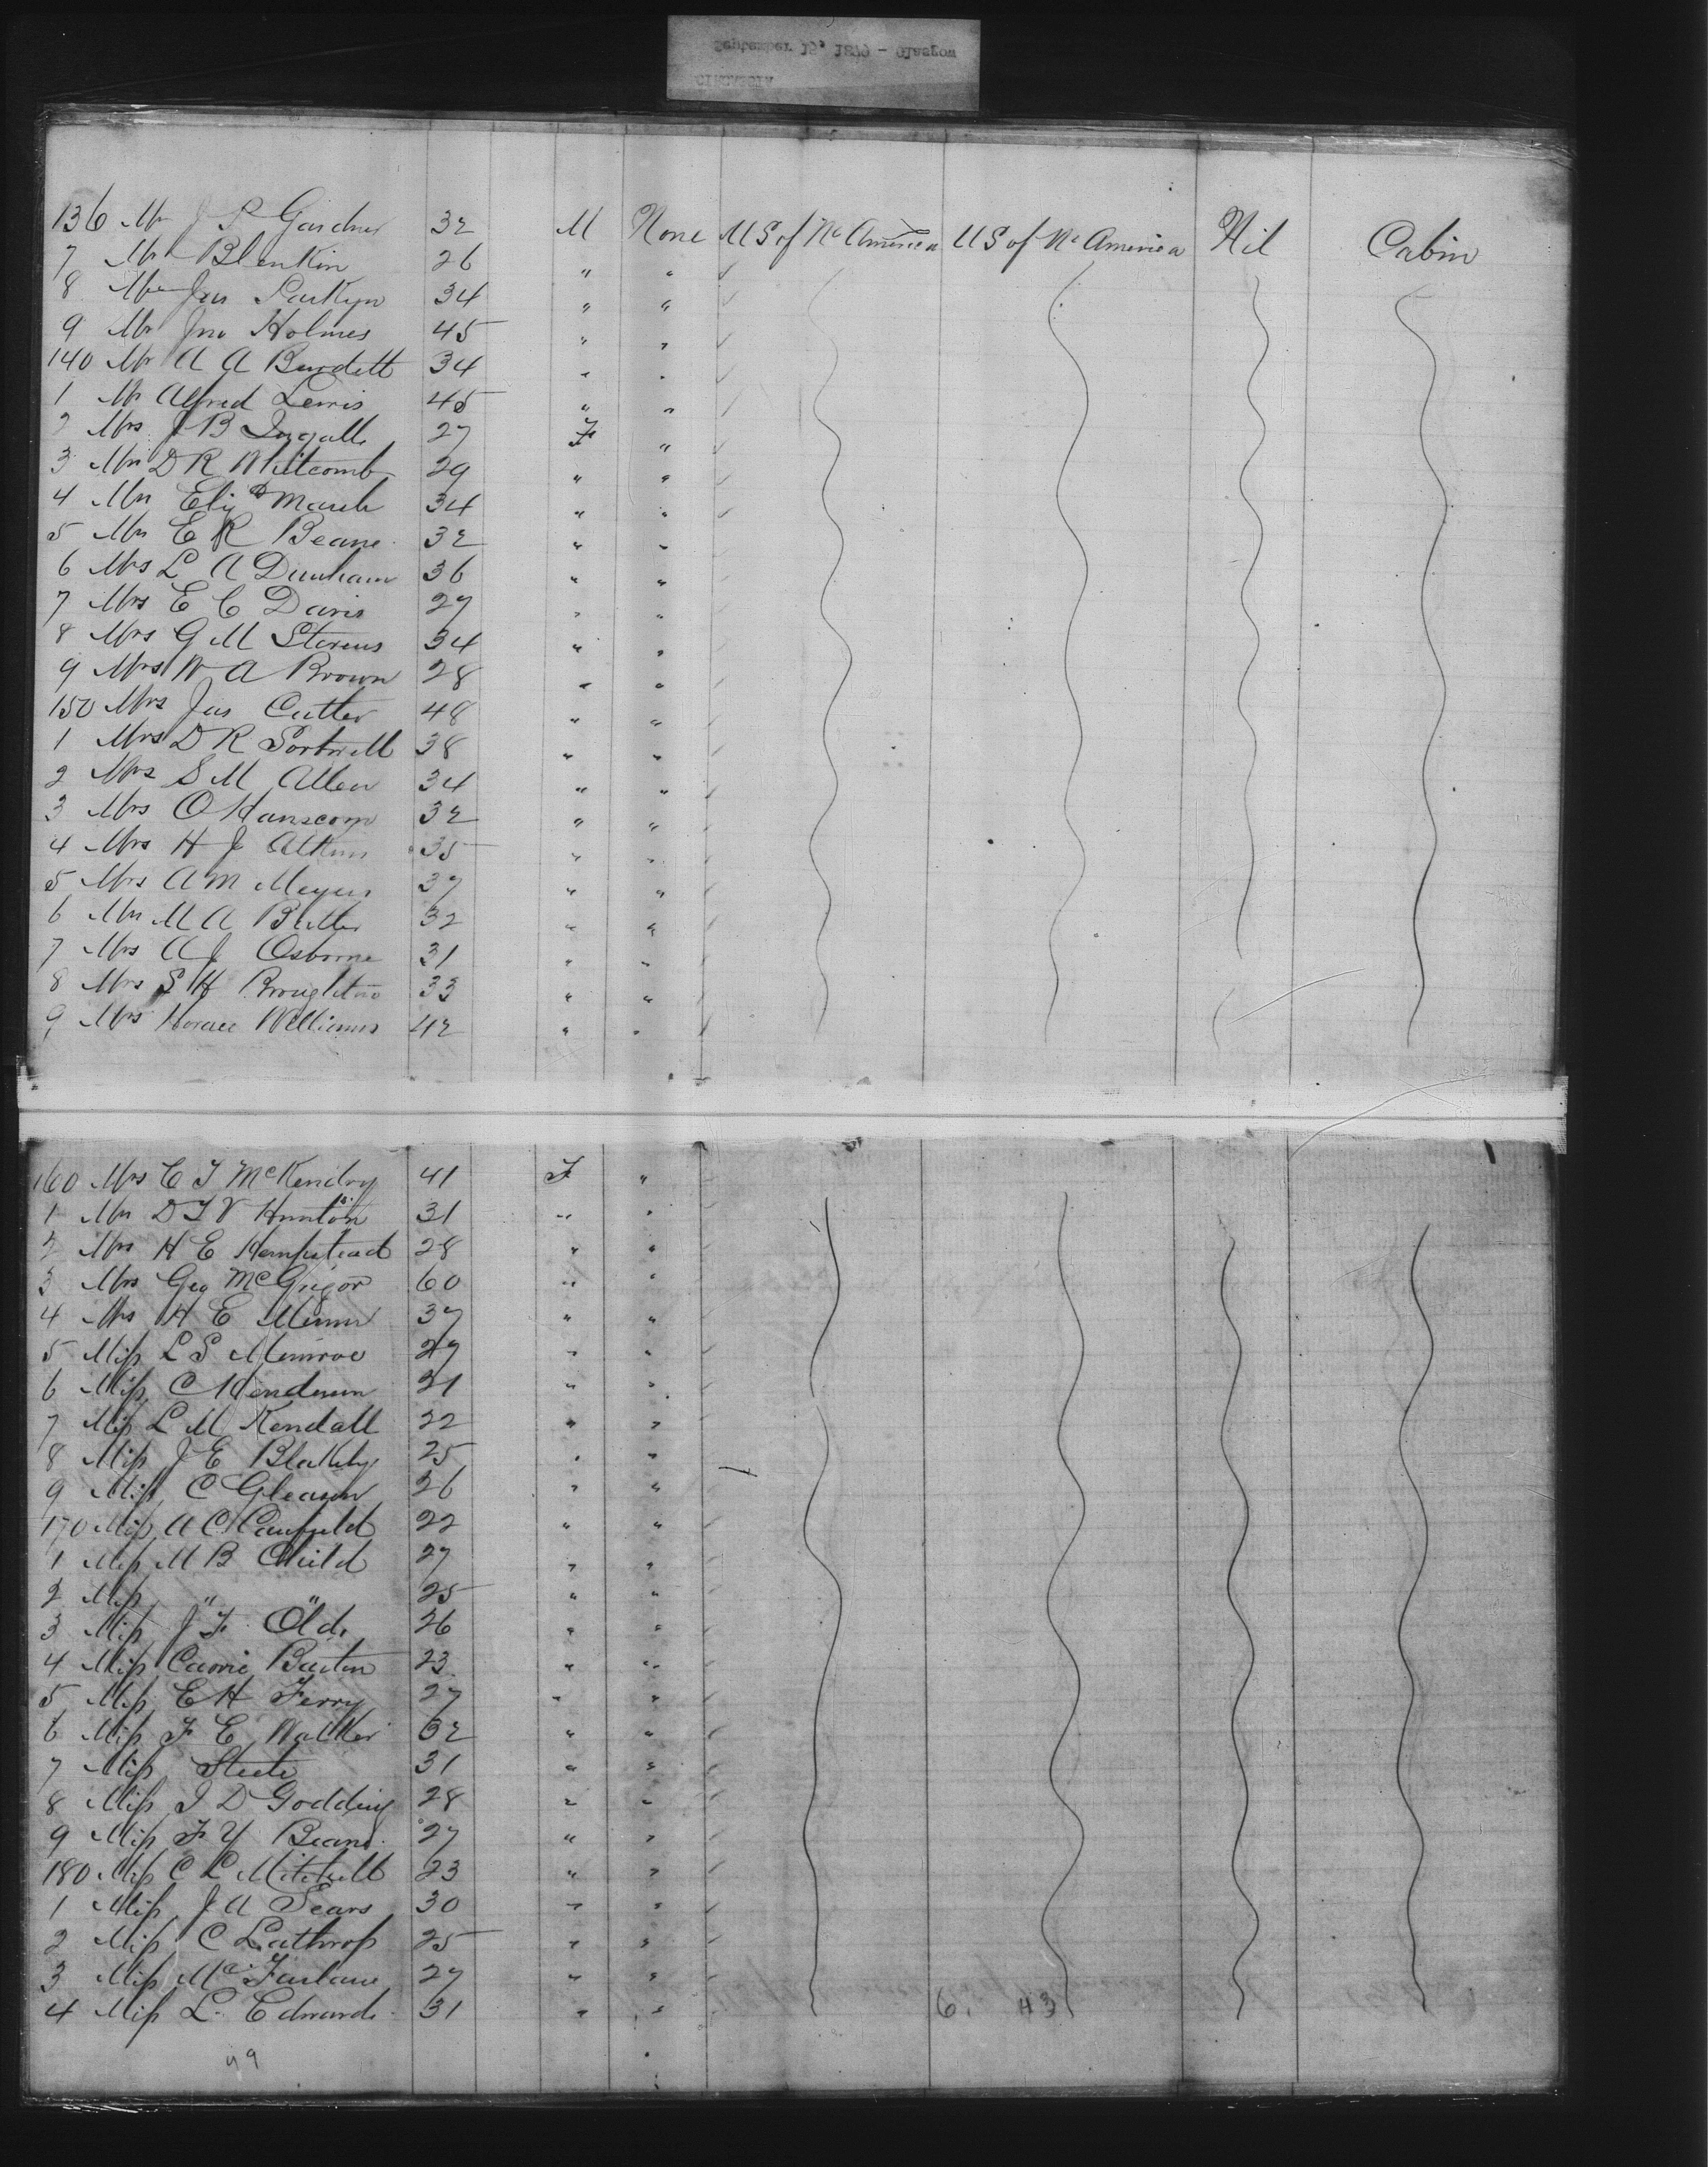 September 15, 1879 - Glasgow
CIRCASSIA
136 Mr J P Gardner 32 M None U S of No America U S of No America Nil Cabin
7 Mr Blenkin 26 " "
8 Mr Jas 34 " "
9 Mr Jno Holmes 45 " "
140 Mr A A Burdett 34 " "
1 Mr Alfred Lewis 45 " "
2 Mrs J B Ingalls 27 F "
3 Mrs D R Whitcomb 29 " "
4 Mrs Eliz Marsh 34 " "
5 Mrs E R Beane 32 " "
6 Mrs L A Dunham 36 " "
7 Mrs E C Davis 27 " "
8 Mrs G M Stevens 34 " "
9 Mrs W A Brown 28 " "
150 Mrs Jas Cutter 48 " "
1 Mrs D R Sortwell 38 " "
2 Mrs S M Allen 34 " "
3 Mrs O Hanscom 32 " "
4 Mrs H J Atkins 35 " "
5 Mrs A M Meyers 37 " "
6 Mrs M A Butler 32 " "
7 Mrs A J Osborne 31 " "
8 Mrs S H Broughton 33 " "
9 Mrs Horace Williams 42 " "
160 Mrs C T McKendry 41 F "
1 Mrs D T V Huntoon 31 " "
2 Mrs H E Hempstead 28 " "
3 Mrs Geo McGrigor 60 " "
4 Mrs H E 37 " "
5 Miss L S Munroe 27 " "
6 Miss C Henderson 21 " "
7 Miss L M Kendall 22 " "
8 Miss J E Blakely 25 " "
9 Miss C Gleason 26 " "
170 Miss A C Canfield 22 " "
1 Miss M B Child 27 " "
2 Miss " " 25 " "
3 Miss J F Olds 26 " "
4 Miss Carrie Barton 23 " "
5 Miss E H Ferry 27 " "
6 Miss F E Walker 32 " "
7 Miss Steele 31 " "
8 Miss I D Godding 28 " "
9 Miss F Y Beane 27 " "
180 Miss C L Mitchell 23 " "
1 Miss J A Sears 30 " "
2 Miss C Lathrop 25 " "
3 Miss McFarlane 27 " "
4 Miss L. Edwards 31 " " 6. 43
49